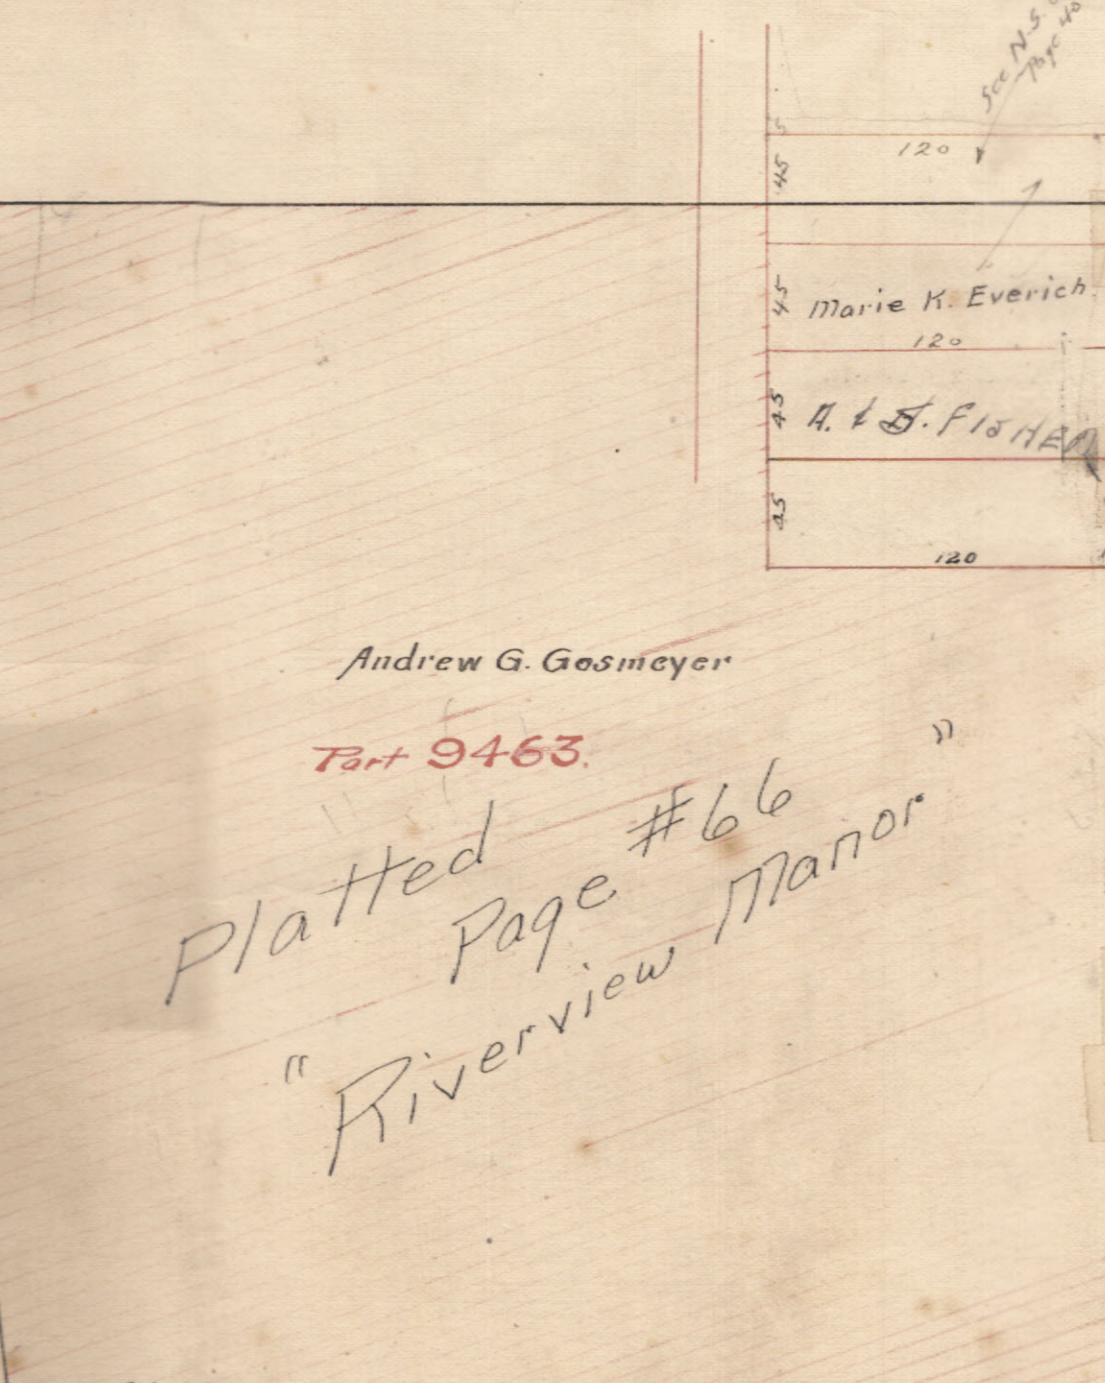 See N.S.
Page 40
5
120
45
45
Marie K. Everich
120
45
A. & J. FISHER
45
120
Andrew G. Gosmeyer
Part 9463.
Platted
Page #66
"Riverview Manor"